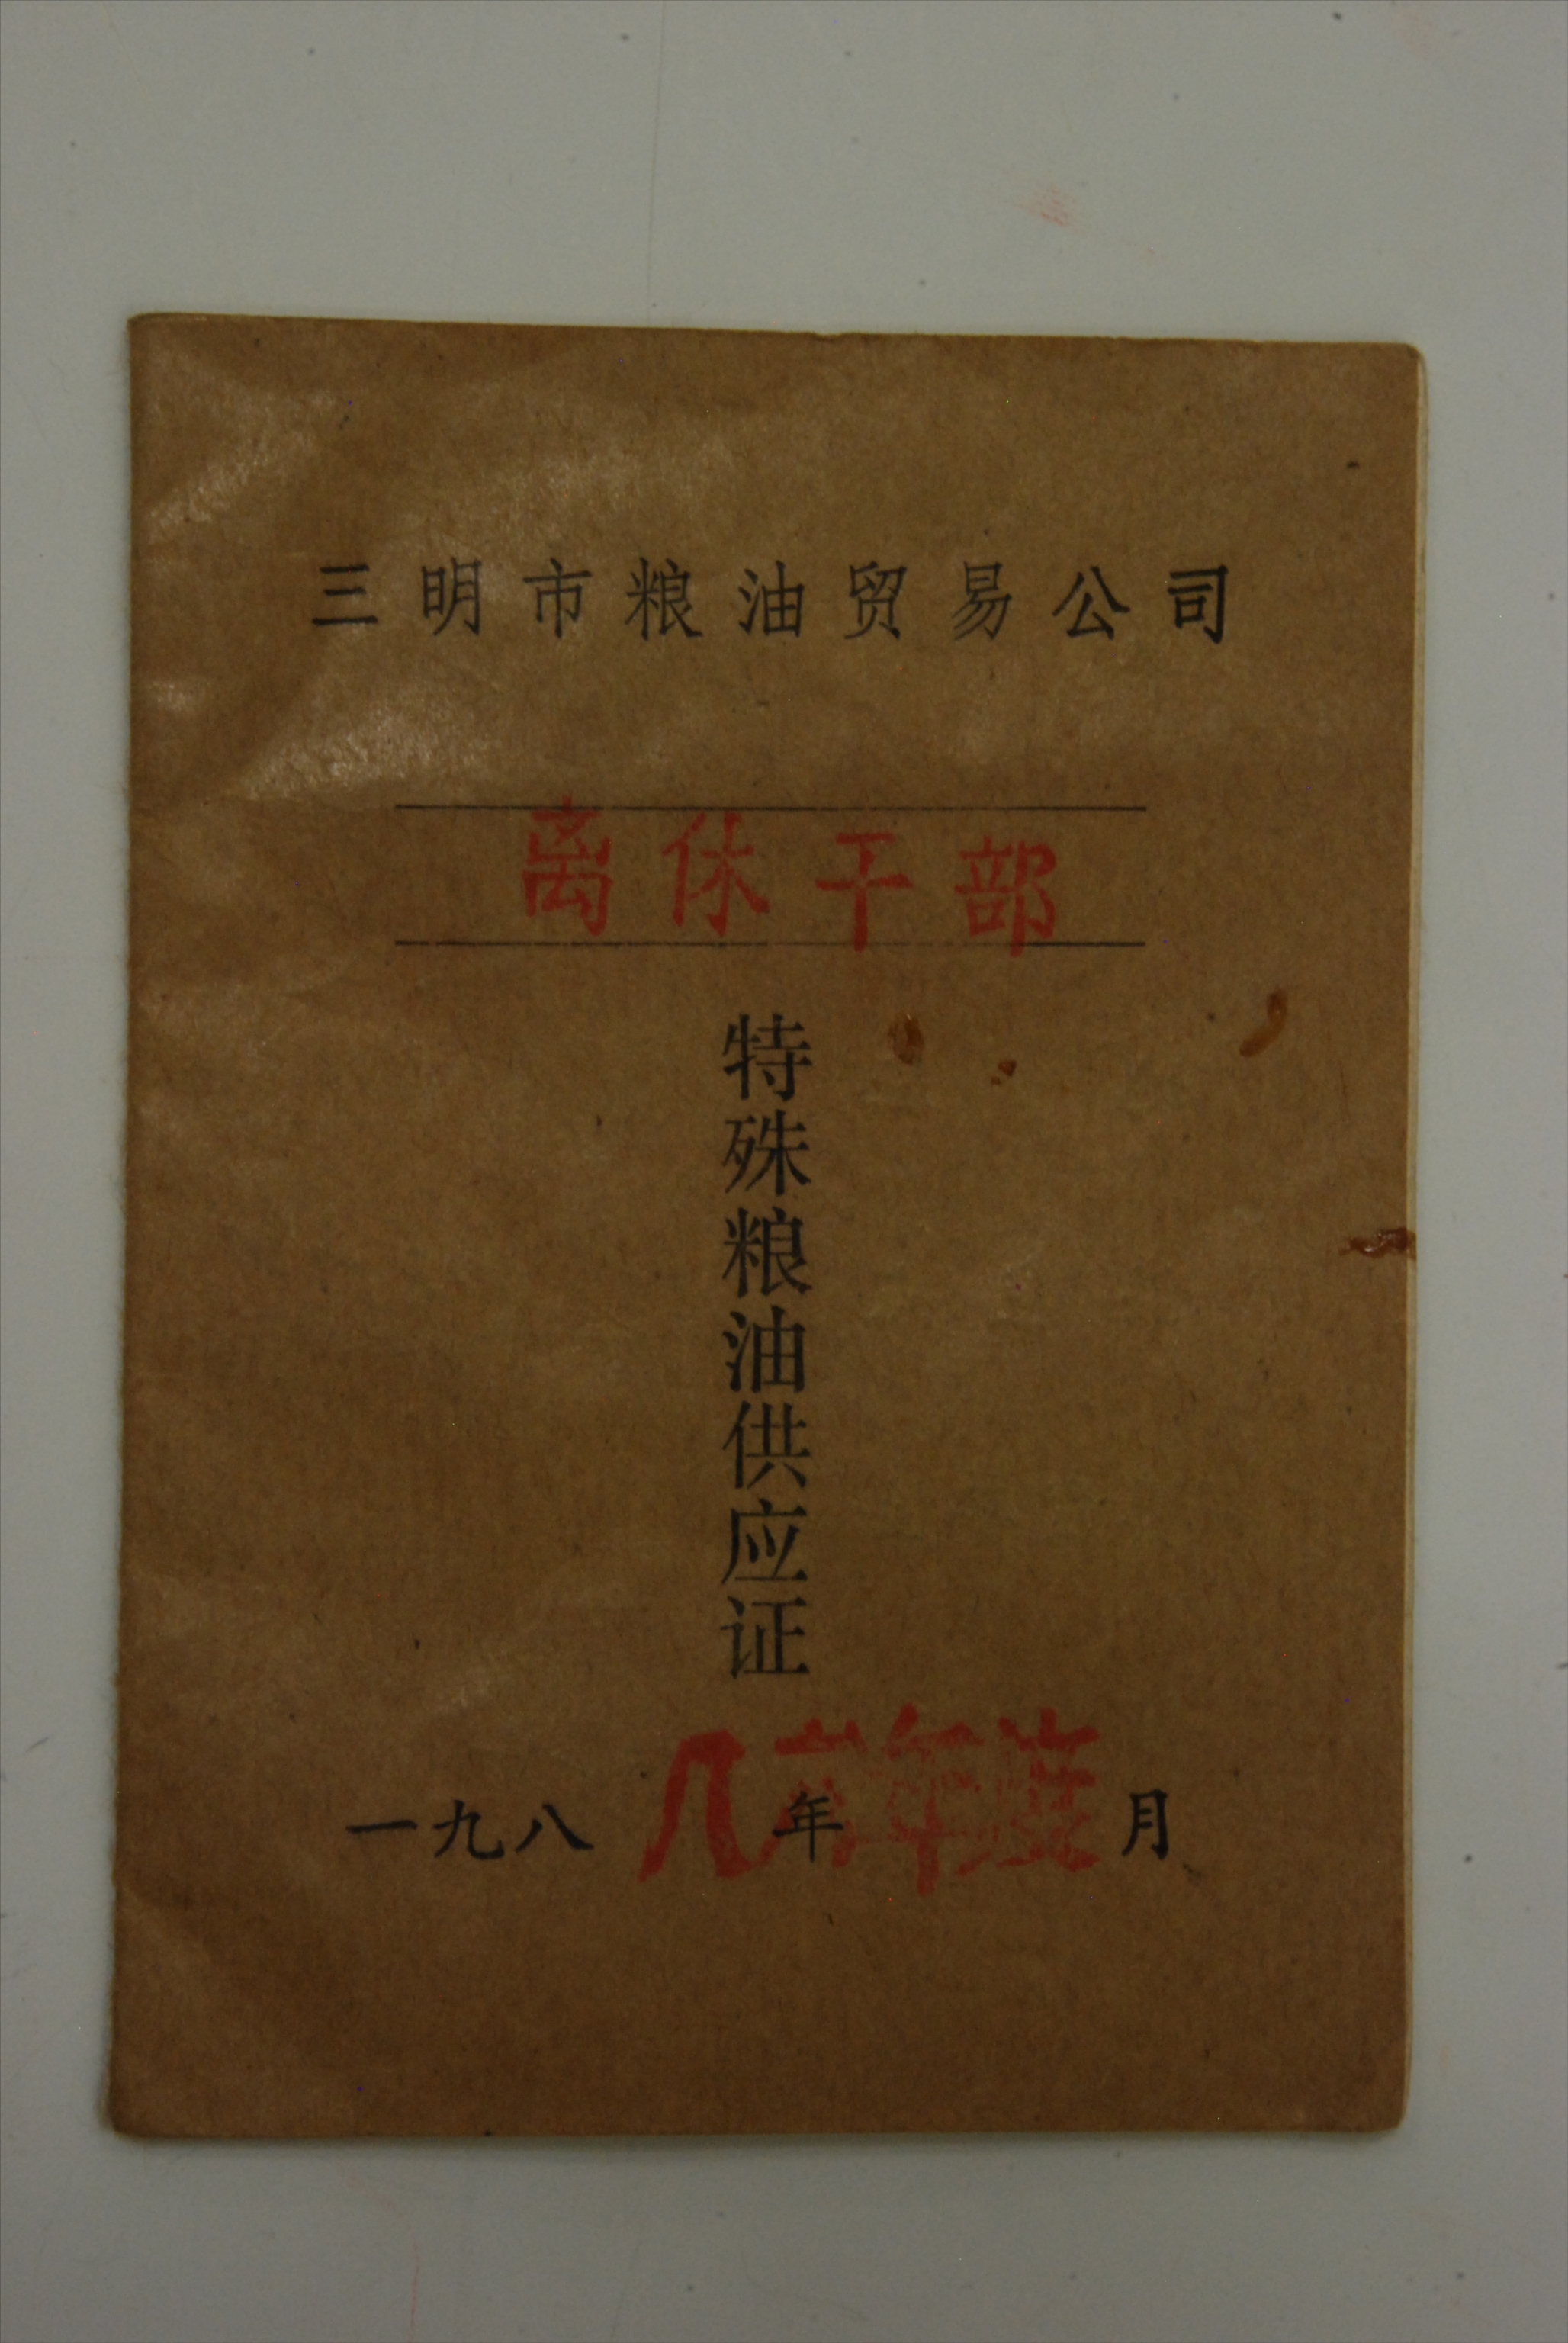 三明市粮油贸易公司
离休干部
特殊粮油供应证
一九八 年 月
八 年度